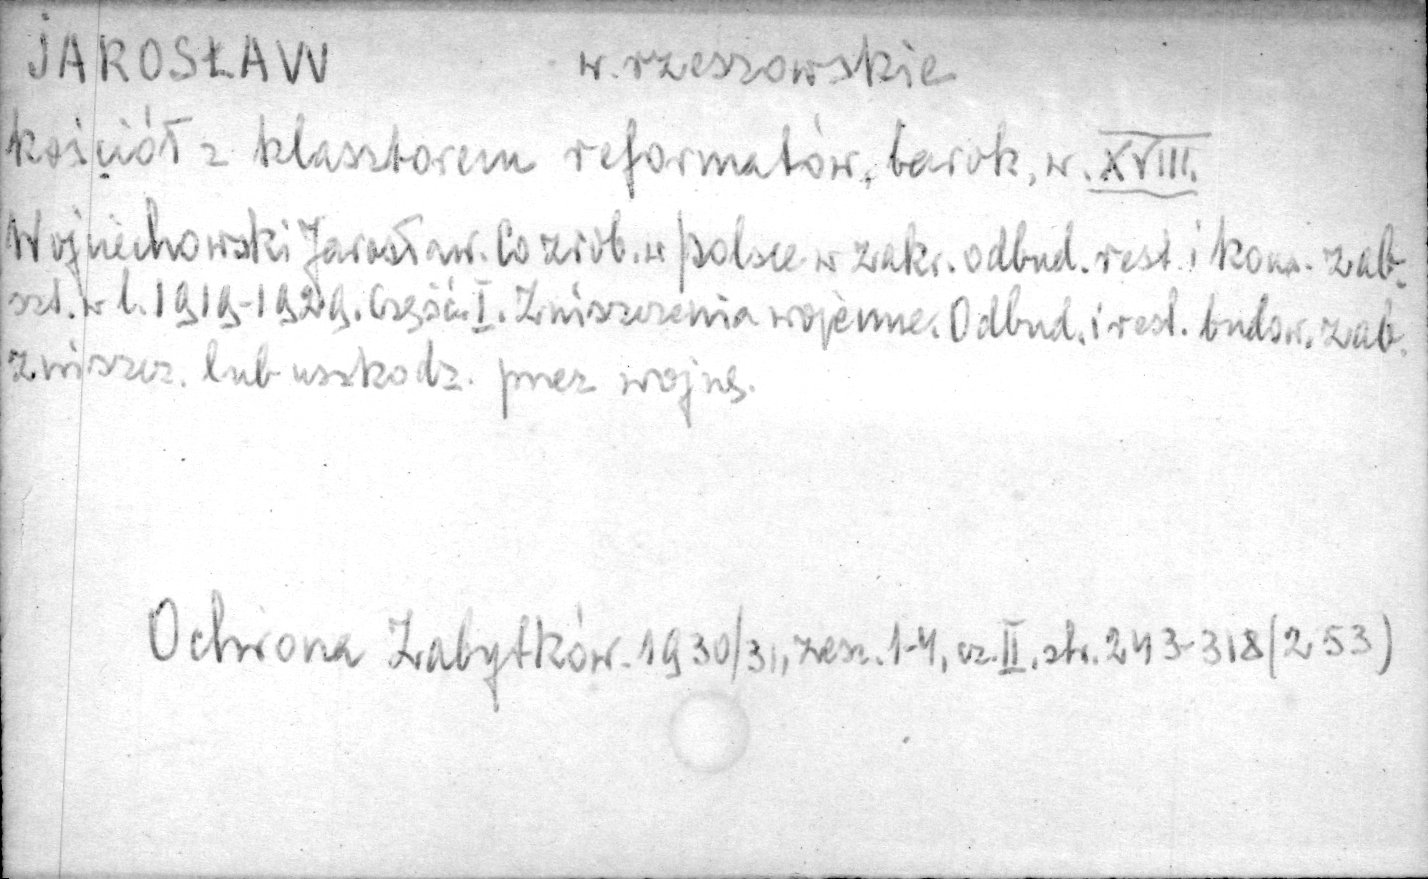 JAROSŁAW w. rzeszowskie
kościół z klasztorem reformatów, barok, w. XVIII.
Wojciechowski Jarosław. Co zrób. w Polsce w zakr. odbud. rest. i kons. zab.
szt. w l. 1919-1929. Część I. Zniszczenia wojenne. Odbud. i rest. budow. zab.
zniszcz. lub uszkodz. przez wojnę.
Ochrona Zabytków. 1930/31, zesz. 1-4, cz. II, str. 243-318 (253)